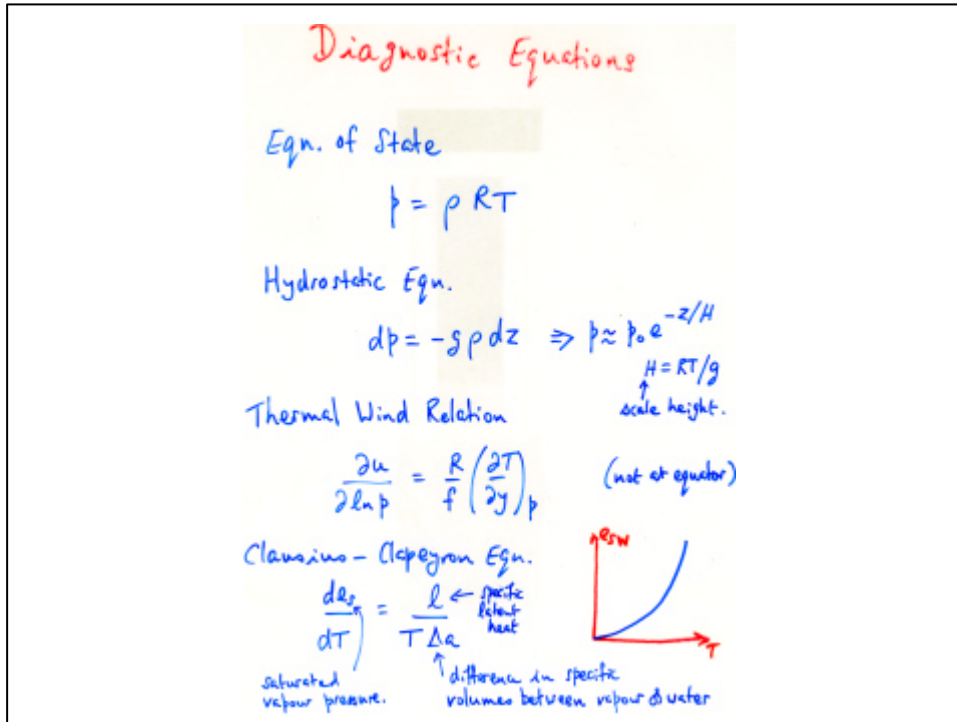 Diagnostic Equations
Eqn. of State
p = ρ RT
Hydrostatic Eqn.
dp = -gρdz ⇒ p ≈ p₀ e^{-z/H}
H = RT/g
↑
scale height.
Thermal Wind Relation
∂u/∂ln p = R/f (∂T/∂y)_p (not at equator)
Clausius - Clapeyron Eqn.
de_s/dT = l/(T Δa) ← specific latent heat
saturated
vapour pressure.
difference in specific
volumes between vapour & water
e_sw
T